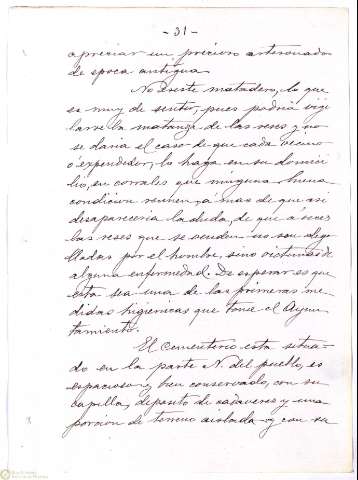 - 31 -
apreciar un precioso artesonado
de epoca antigua.
No existe matadero, lo que
es muy de sentir, pues podria vigi
larse la matanza de las reses, y no
se daria el caso de que cada vecino
ó expendedor, lo haga en su domici
lio, en corrales que ninguna buena
condicion reunen, a mas de que asi
desapareceria la duda, de que a veces
las reses que se venden no son dego
lladas por el hombre, sino victimas de
alguna enfermedad. De esperar es que
esta sea una de las primeras me
didas higienicas que tome el Ayun
tamiento.
El cementerio esta situa-
do en la parte N. del pueblo, es
espacioso y bien conservado, con su
capilla, deposito de cadaveres y una
porcion de terreno aislada y con su